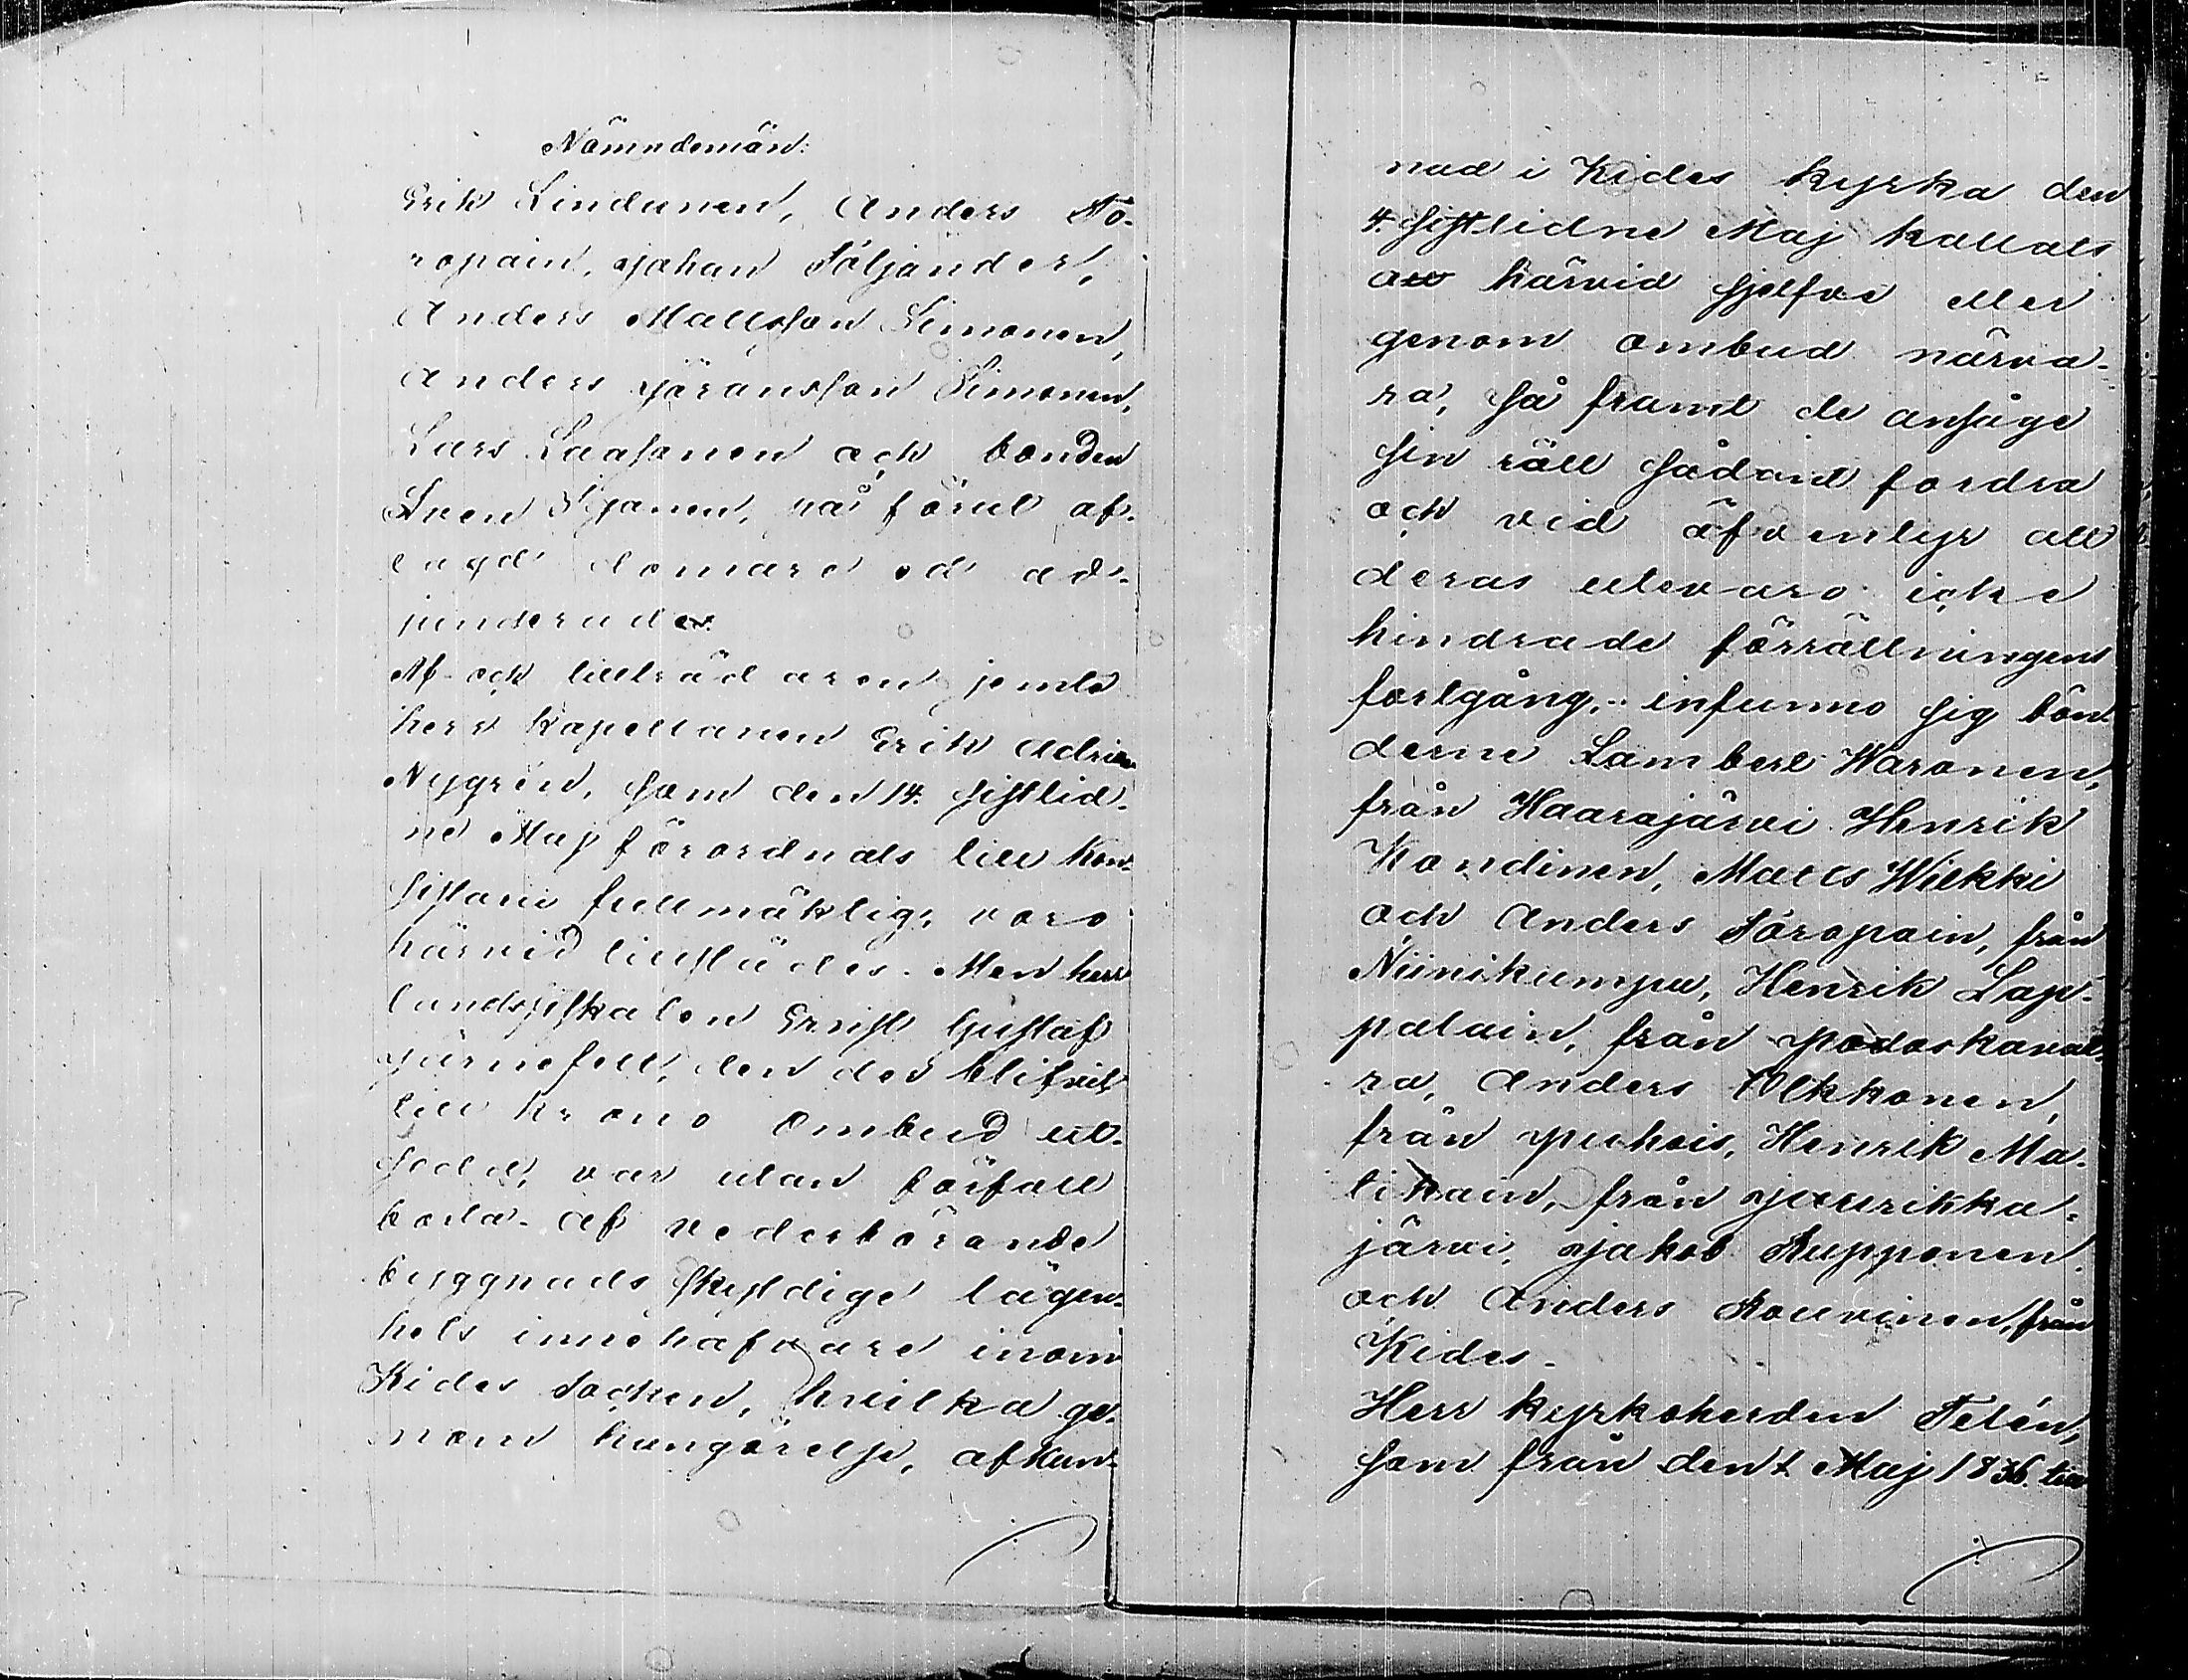 Nämndemän:
Erik Lindunen, Anders To-
ropain, Johan Töljander,
Anders Mattsson Simonen,
Anders Jöransson Simonen,
Lars Laasonen och bonden
Sven Iljanen, på förut af-
lagd domare ed ad-
jungerade.
Af- och tillträdaren jemte
herr kapellanen Erik Adrian
Nygrén, som den 14. sistlid-
ne Maj förordnats till kon-
sistorii fullmäktig, voro
härvid tillstädes. Men herr
landsfiskalen Ernst Gustaf
Järnefelt, den der blifvit
till krono ombud ut-
sedd, var utan förfall
borta. Af vederbörande
byggnads skyldige lägen-
hets innehafvare inom
Kides socken, hvilka ge-
nom kungörelse, afkun-
nad i Kides kyrka den
4. sistlidne Maj kallats
att härvid sjelfve eller
genom ombud närva-
ra, så framt de ansåge
sin rätt sådant fordra
och vid äfventyr att
deras utevaro icke
hindrade förrättningens
fortgång, infunno sig bön-
derne Lambert Waronen,
från Haarajärvi Henrik
Kondinen, Matts Wiekki
och Anders Töropain, från
Niinikumpu, Henrik Lap-
palain, från Podoskavat-
ra, Anders Olkkonen,
från Puhois, Henrik Ma-
tikain, från Juurikka-
järvi, Jakob Rupponen
och Anders Rouvinen, från
Kides.
Herr kyrkoherden Telén,
som från den 1 Maj 1836. till